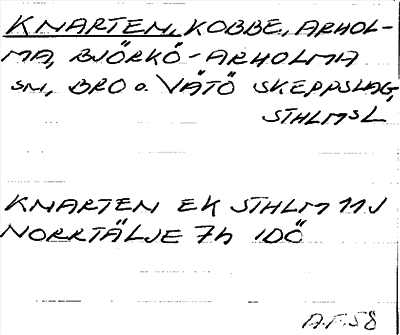 KNARTEN, KOBBE, ARHOL-
MA, BJÖRKÖ-ARHOLMA
SN, BRO o. VÄTÖ SKEPPSLAG,
STHLMSL
KNARTEN EK STHLM 11J
NORRTÄLJE 7h IDÖ
A.F.58